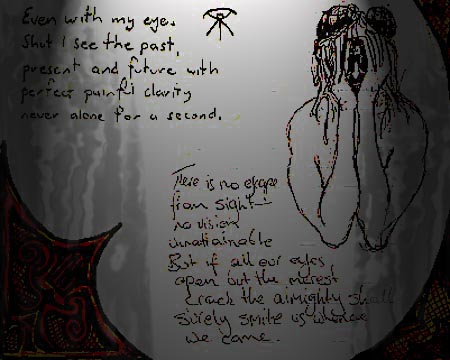 Even with my eyes
Shut I see the past,
present and future with
perfect painful clarity
never alone for a second.
There is no escape
from sight
no vision
unattainable
But if all our eyes
open but the merest
crack the almighty shall
surely smite us whence
we came.